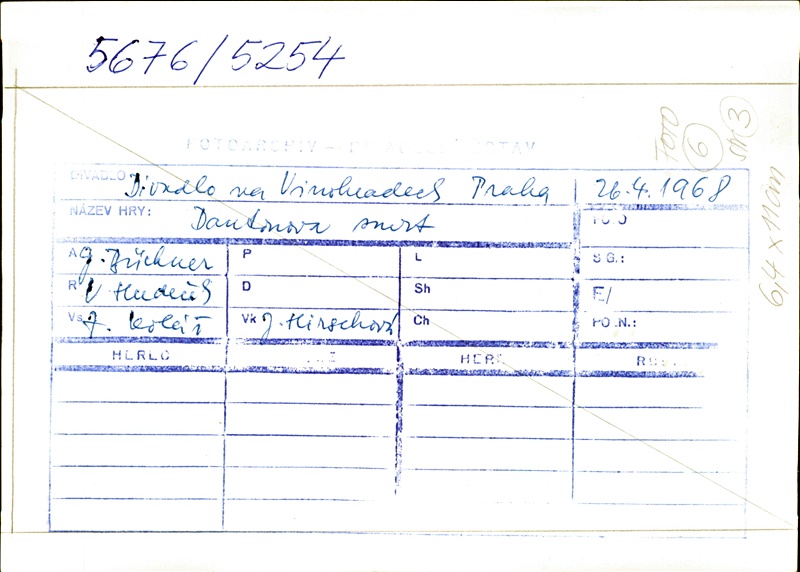 5676/5254
FOTO 6 str 3
6,4 x 11 cm
FOTOARCHIV – DIVADELNÍ ÚSTAV
DIVADLO Divadlo na Vinohradech Praha 26.4.1968
NÁZEV HRY: Dantonova smrt FOTO
A G. Büchner P L SG.:
R D Sh E/
Vs Z. Kolář Vk J. Hirschová Ch PO.N.:
HEREC HERE